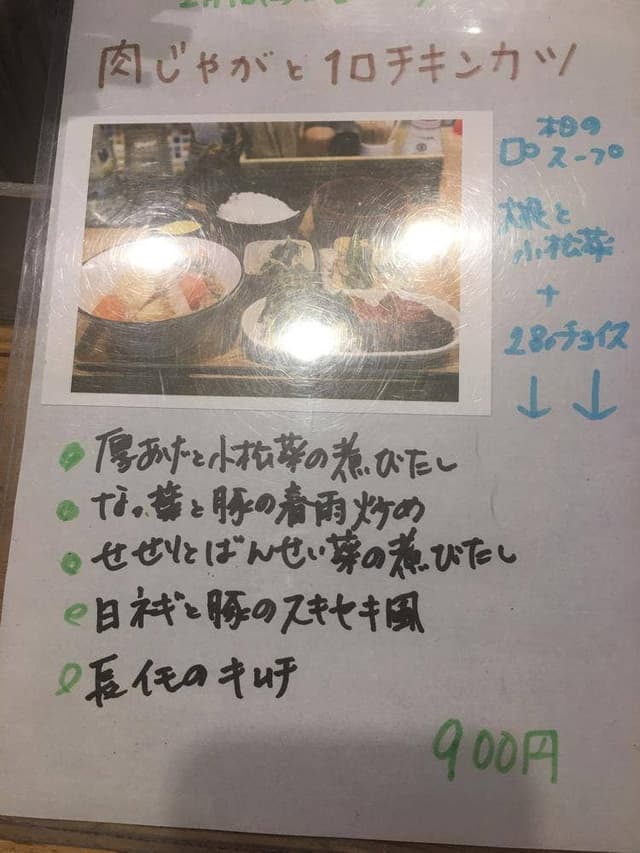 肉じゃがと1口チキンカツ
本日の
スープ
大根と
小松菜
+
2品チョイス
↓↓
厚あげと小松菜の煮びたし
なっ葉と豚の春雨炒め
せせりとばんせい菜の煮びたし
白ネギと豚のスキヤキ風
長イモのキムチ
900円